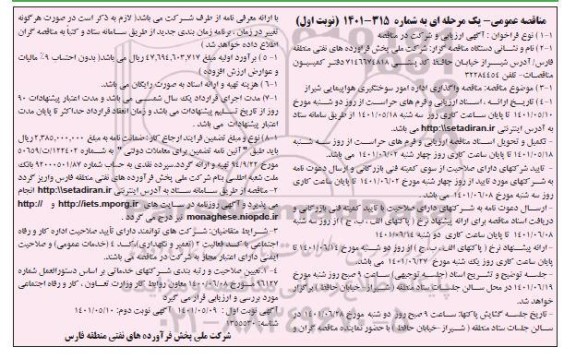 مناقصه عمومی- یک مرحله ای به شماره ۳۱۵-۱۴۰۱ (نوبت اول)
۱-۱) نوع فراخوان : آگهی ارزیابی و شرکت در مناقصه
۲-۱) نام و نشانی دستگاه مناقصه گزار: شرکت ملی پخش فرآورده های نفتی منطقه
فارس/ آدرس شیراز خیابان حافظ/ کد پستی ۷۱۴۶۶۷۴۸۱۸ دفتر کمیسیون
مناقصات- تلفن ۳۲۲۸۴۴۵۴
۳-۱) موضوع مناقصه: مناقصه واگذاری اداره امور سوختگیری هواپیمایی شیراز
۴-۱) تاریخ ارائه ، اسناد ارزیابی و فرم های حراست از روز دو شنبه مورخ
۱۴۰۱/۰۵/۱۰ تا پایان ساعت کاری روز سه شنبه ۱۴۰۱/۰۵/۱۸ از طریق سامانه ستاد
به آدرس اینترنتی http\\setadiran.ir می باشد
- تکمیل و تحویل اسناد مناقصه ارزیابی و فرم های حراست از روز سه شنبه
۱۴۰۱/۰۵/۱۸ تا پایان ساعت کاری روز چهار شنبه ۱۴۰۱/۰۶/۰۲ می باشد.
- تایید شرکتهای دارای صلاحیت از سوی کمیته فنی بازرگانی و ارسال دعوت نامه
به شرکتهای مورد تایید از روز چهار شنبه مورخ ۱۴۰۱/۰۶/۰۲ تا پایان ساعت کاری
روز سه شنبه مورخ ۱۴۰۱/۰۶/۰۸ می باشد.
- ارسال دعوت نامه به شرکتهای دارای صلاحیت با تایید کمیته فنی بازرگانی و
دریافت اسناد مناقصه برای ارائه پیشنهاد نرخ ( پاکتهای الف ، ب، ج ) از روز سه شنبه
۱۴۰۱/۰۶/۰۸ تا پایان ساعت کاری دو شنبه ۱۴۰۱/۰۶/۱۴
- ارائه پیشنهاد نرخ ( پاکتهای الف، ب، ج ) از روز دو شنبه مورخ ۱۴۰۱/۰۶/۱۴ تا
پایان ساعت کاری روز یک شنبه مورخ ۱۴۰۱/۰۶/۲۷ می باشد.
- جلسه توضیح و تشریح اسناد (جلسه توجیهی) ساعت ۹ صبح روز شنبه مورخ
۱۴۰۱/۰۶/۱۹ در محل سالن جلسات ستاد منطقه (شیراز- خیابان حافظ ) برگزار
خواهد شد.
- تاریخ جلسه گشایش پاکتها: ساعت ۹ صبح روز دو شنبه مورخ ۱۴۰۱/۰۶/۲۸ در
سالن جلسات ستاد منطقه ( شیراز -خیابان حافظ ) با حضور نماینده مناقصه گران و
با ارائه معرفی نامه از طرف شرکت می باشد( لازم به ذکر است در صورت هرگونه
تغییر در زمان ، برنامه زمان بندی جدید از طریق سامانه ستاد و کتبا به مناقصه گران
اطلاع داده خواهد شد )
۵-۱ ) برآورد اولیه مبلغ ۴۷,۶۹۴,۶۰۳,۷۱۷ ریال می باشد( بدون احتساب ۹٪ مالیات
و عوارض ارزش افزوده )
۶-۱) هزینه تهیه و ارائه اسناد به صورت رایگان می باشد.
۷-۱) مدت اجرای قرارداد یک سال شمسی می باشد و مدت اعتبار پیشنهادات ۹۰
روز از تاریخ تسلیم پیشنهادات می باشد و زمان انعقاد قرارداد حداکثر تا پایان مدت
اعتبار پیشنهادات می باشد.
۸-۱) نوع و مبلغ تضمین فرآیند ارجاع کار : ضمانت نامه به مبلغ ۲,۳۸۵,۰۰۰,۰۰۰ ریال می باشد
باید طبق " آئین نامه تضمین برای معاملات دولتی " به شماره ۱۲۳۴۰۲/ت۵۰۶۵۹ه
مورخ ۹۴/۹/۲۲ تهیه و ارائه گردد.سپرده نقدی به حساب شماره ۹۲۰۰۰۵۰۱۸۷ بانک
ملت شعبه اطلسی بنام شرکت ملی پخش فرآورده های نفتی منطقه فارس واریز گردد
۲-مناقصه از طریق سامانه ستاد به آدرس اینترنتی http:\\setadiran.ir انجام
می پذیرد و آگهی روزنامه در سایت های http://iets.mporg.ir و http://
monaghese.niopdc.ir نیز درج می گردد .
۳-شرایط متقاضیان: شرکت های توانمند دارای تأیید صلاحیت اداره کار و رفاه
اجتماعی با کد فعالیت ۲ (تعمیر و نگهداری)،کد ۴ (خدمات عمومی) و صلاحیت
ایمنی دارای اعتبار مجاز به شرکت در مناقصه می باشند.
۴-۳.تعیین صلاحیت و رتبه بندی شرکتهای خدماتی بر اساس دستورالعمل شماره
۹۶۱۲۷ مورخ ۱۴۰۰/۰۶/۰۸ معاون روابط کار وزارت تعاون ، کار و رفاه اجتماعی
مورد بررسی و ارزیابی قرار می گیرد
آگهی نوبت اول: ۱۴۰۱/۰۵/۰۹ آگهی نوبت دوم: ۱۴۰۱/۰۵/۱۰
شناسه: ۱۳۵۵۵۳۰
شرکت ملی پخش فرآورده های نفتی منطقه فارس